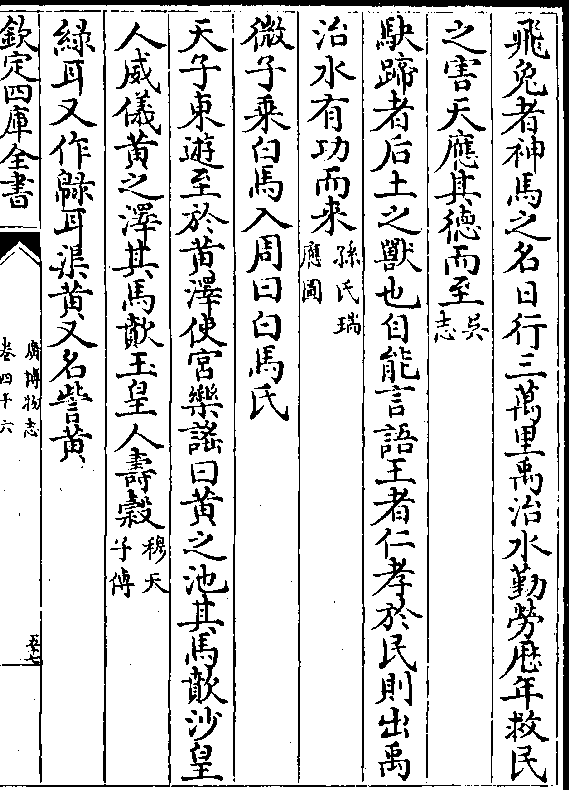 飛兔者神馬之名日行三萬里禹治水勤勞歷年救民
之害天應其德而至吳志
駃蹄者后土之獸也自能言語王者仁孝於民則出禹
治水有功而来孫氏瑞應圖
微子乘白馬入周曰白馬氏
天子東遊至於黃澤使宮樂謡曰黃之池其馬歕沙皇
人威儀黃之澤其馬歕玉皇人壽穀穆天子傳
緑耳又作騄耳渠黃又名訾黃
欽定四庫全書
廣博物志
卷四十六